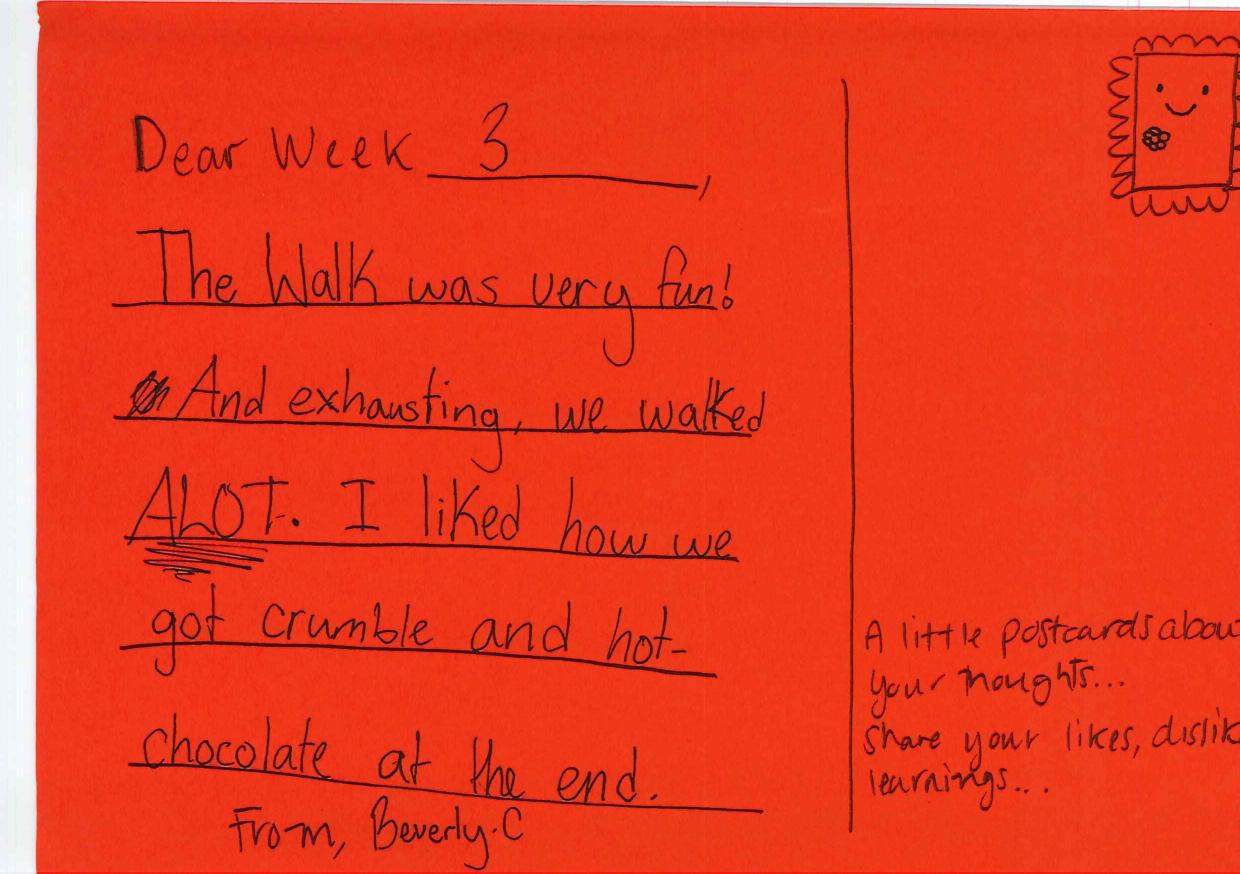 Dear Week 3,
The Walk was very fun!
And exhausting, we walked
ALOT. I liked how we
got crumble and hot-
chocolate at the end.
From, Beverly.C
A little postcards abou
your thoughts...
share your likes, dislik
learnings...